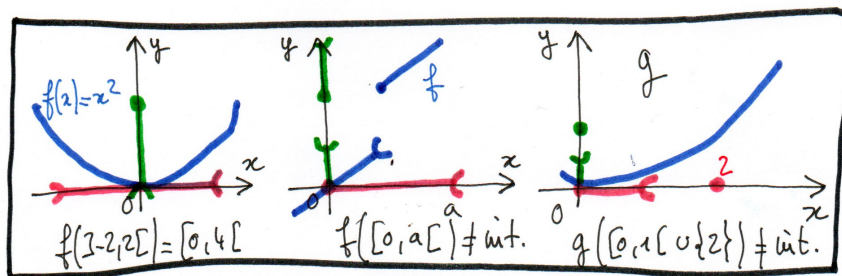 y
f(x)=x²
x
0
f(]-2,2[)=[0,4[
y
f
x
0
a
f([0,a[)≠int.
y
g
2
0
x
g([0,1[∪{2})≠int.